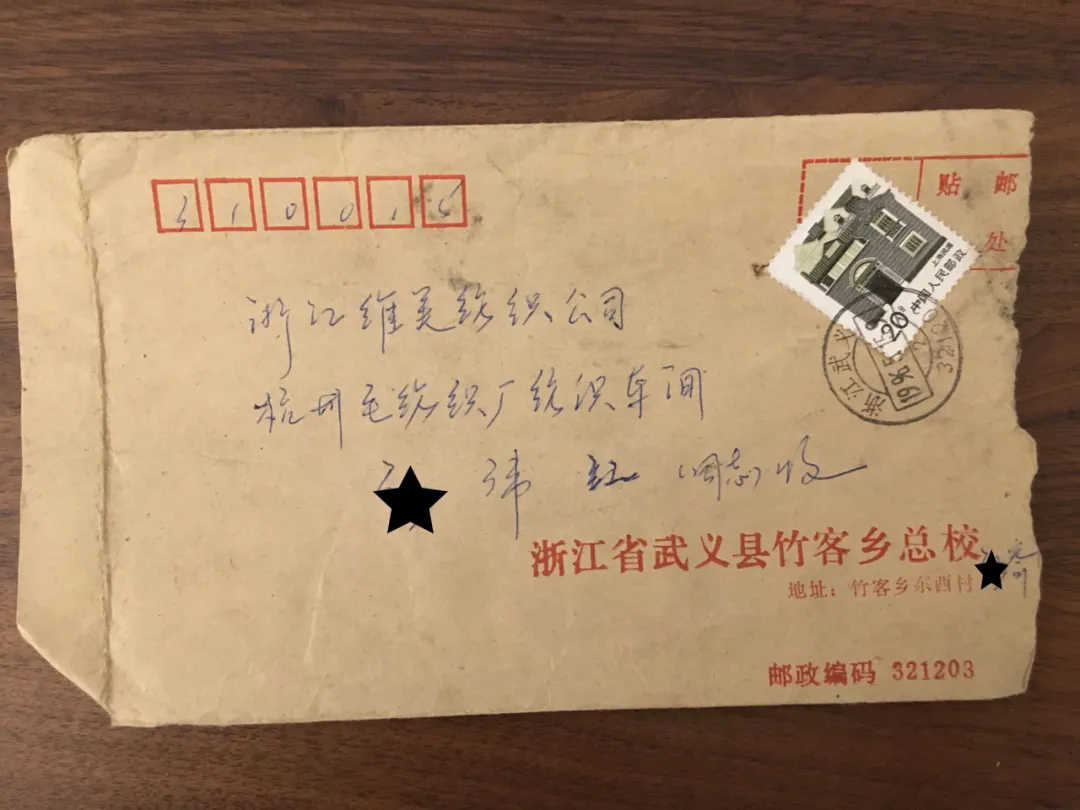 310016
贴 邮
处
上海民居
中国人民邮政
20分
浙江武义
1996
3212
浙江维美纺织公司
杭州毛纺织厂纺织车间
玮 红 同志收
浙江省武义县竹客乡总校
地址：竹客乡东西村
邮政编码 321203